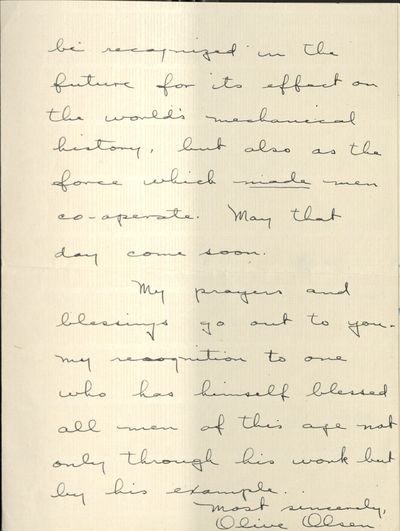 be recognized in the
future for its effect on
the world's mechanical
history, but also as the
force which made men
co-operate. May that
day come soon.
My prayers and
blessings go out to you-
my recognition to one
who has himself blessed
all men of this age not
only through his work but
by his example.
Most sincerely,
Olive Olsen